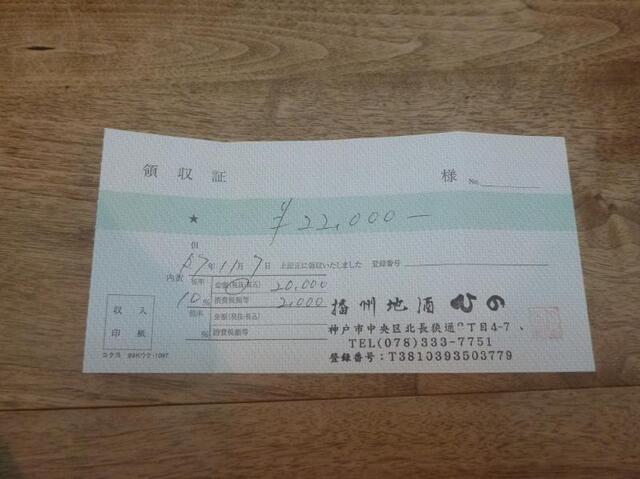 領収証 様 No.
★ ¥22,000-
但
07年11月7日 上記正に領収いたしました 登録番号
内訳 税率 金額(税抜・税込) 20,000
10% 消費税額等 2,000
税率 金額(税抜・税込)
% 消費税額等
収入
印紙
コクヨ
播州地酒 ひの
神戸市中央区北長狭通2丁目4-7
TEL(078)333-7751
登録番号:T3810393503779